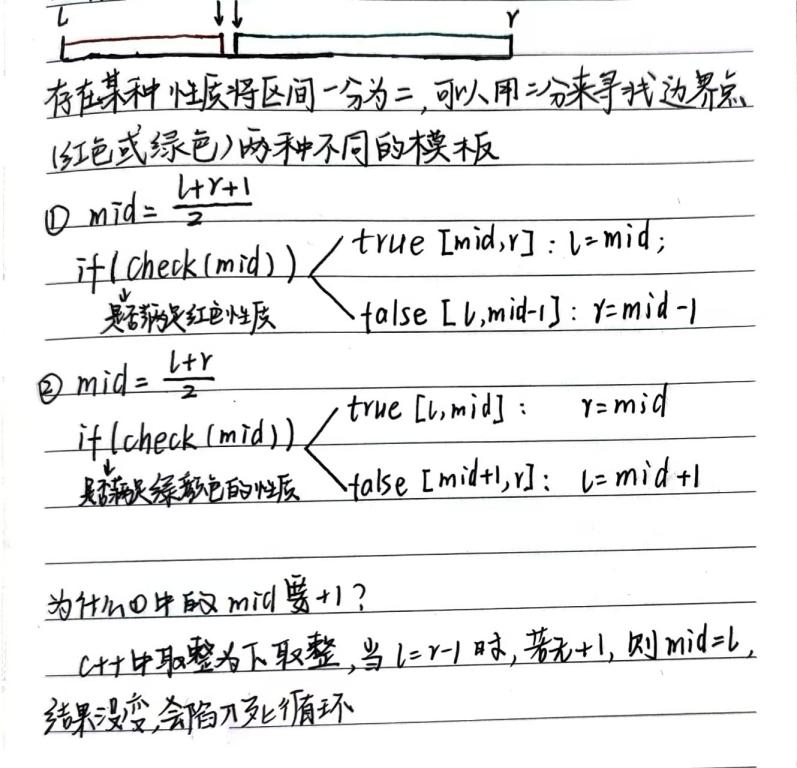 l r
存在某种性质将区间一分为二,可以用二分来寻找边界点
(红色或绿色)两种不同的模板
① mid = l+r+1 / 2
if(check(mid)) true [mid,r] : l=mid;
是否满足红色性质 false [l,mid-1] : r=mid-1
② mid = l+r / 2
if(check(mid)) true [l,mid] : r=mid
是否满足绿颜色的性质 false [mid+1,r] : l=mid+1
为什么①中的mid要+1?
C++中取整为下取整,当l=r-1时,若无+1,则mid=l,
结果没变,会陷入死循环